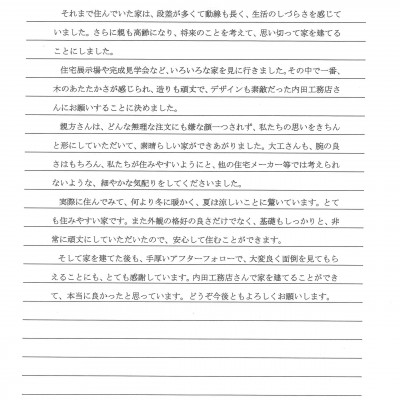 それまで住んでいた家は、段差が多くて動線も長く、生活のしづらさを感じて
いました。さらに親も高齢になり、将来のことを考えて、思い切って家を建てる
ことにしました。
住宅展示場や完成見学会など、いろいろな家を見に行きました。その中で一番、
木のあたたかさが感じられ、造りも頑丈で、デザインも素敵だった内田工務店さ
んにお願いすることに決めました。
親方さんは、どんな無理な注文にも嫌な顔一つされず、私たちの思いをきちん
と形にしていただいて、素晴らしい家ができあがりました。大工さんも、腕の良
さはもちろん、私たちが住みやすいようにと、他の住宅メーカー等では考えられ
ないような、細やかな気配りをしてくださいました。
実際に住んでみて、何より冬に暖かく、夏は涼しいことに驚いています。とて
も住みやすい家です。また外観の格好の良さだけでなく、基礎もしっかりと、非
常に頑丈にしていただいたので、安心して住むことができます。
そして家を建てた後も、手厚いアフターフォローで、大変良く面倒を見てもら
えることにも、とても感謝しています。内田工務店さんで家を建てることができ
て、本当に良かったと思っています。どうぞ今後ともよろしくお願いします。